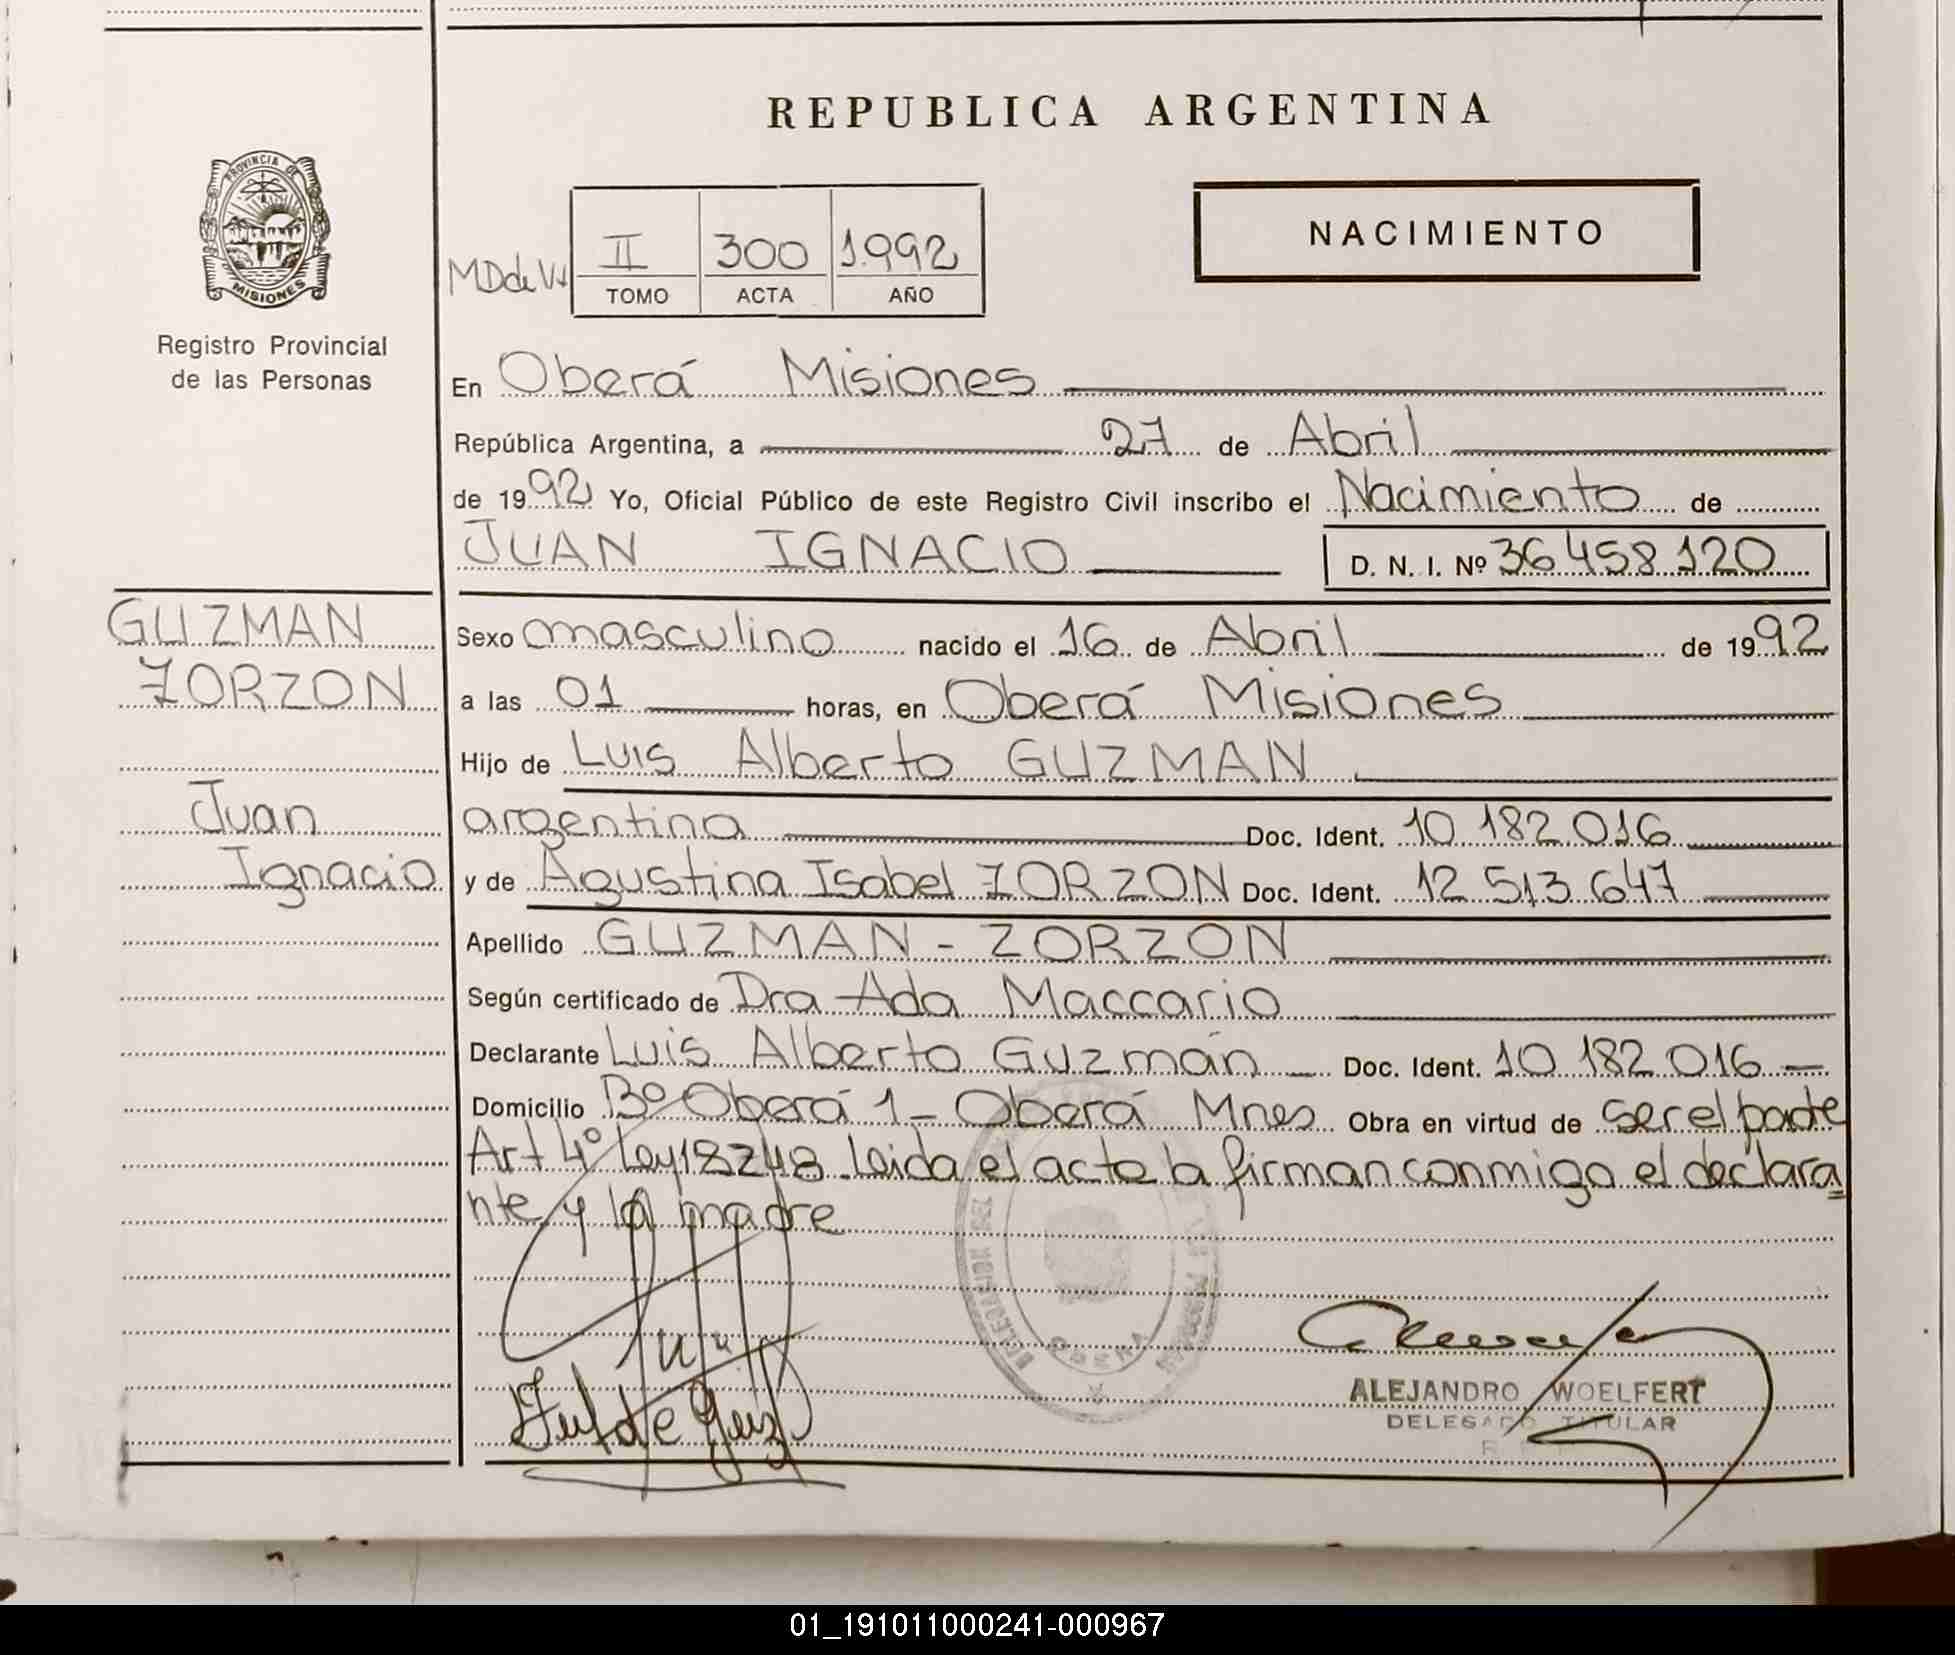 REPUBLICA ARGENTINA
PROVINCIA DE
MISIONES
Registro Provincial
de las Personas
MD de V.
II 300 1.992
TOMO ACTA AÑO
NACIMIENTO
En Oberá Misiones
República Argentina, a 27 de Abril
de 1992 Yo, Oficial Público de este Registro Civil inscribo el Nacimiento de
JUAN IGNACIO D. N. I. Nº 36 458 120
GUZMAN
ZORZON
Juan
Ignacio
Sexo masculino nacido el 16 de Abril de 1992
a las 01 horas, en Oberá Misiones
Hijo de Luis Alberto GUZMAN
argentina Doc. Ident. 10 182 016
y de Agustina Isabel ZORZON Doc. Ident. 12 513 647
Apellido GUZMAN - ZORZON
Según certificado de Dra Ada Maccario
Declarante Luis Alberto Guzmán Doc. Ident. 10 182 016
Domicilio Bº Oberá 1 - Oberá Mnes Obra en virtud de ser el padre
Art 4º Ley 18248. Leida el acta la firman conmigo el declara
nte y la madre
ALEJANDRO WOELFERT
DELEGADO TITULAR
01_191011000241-000967